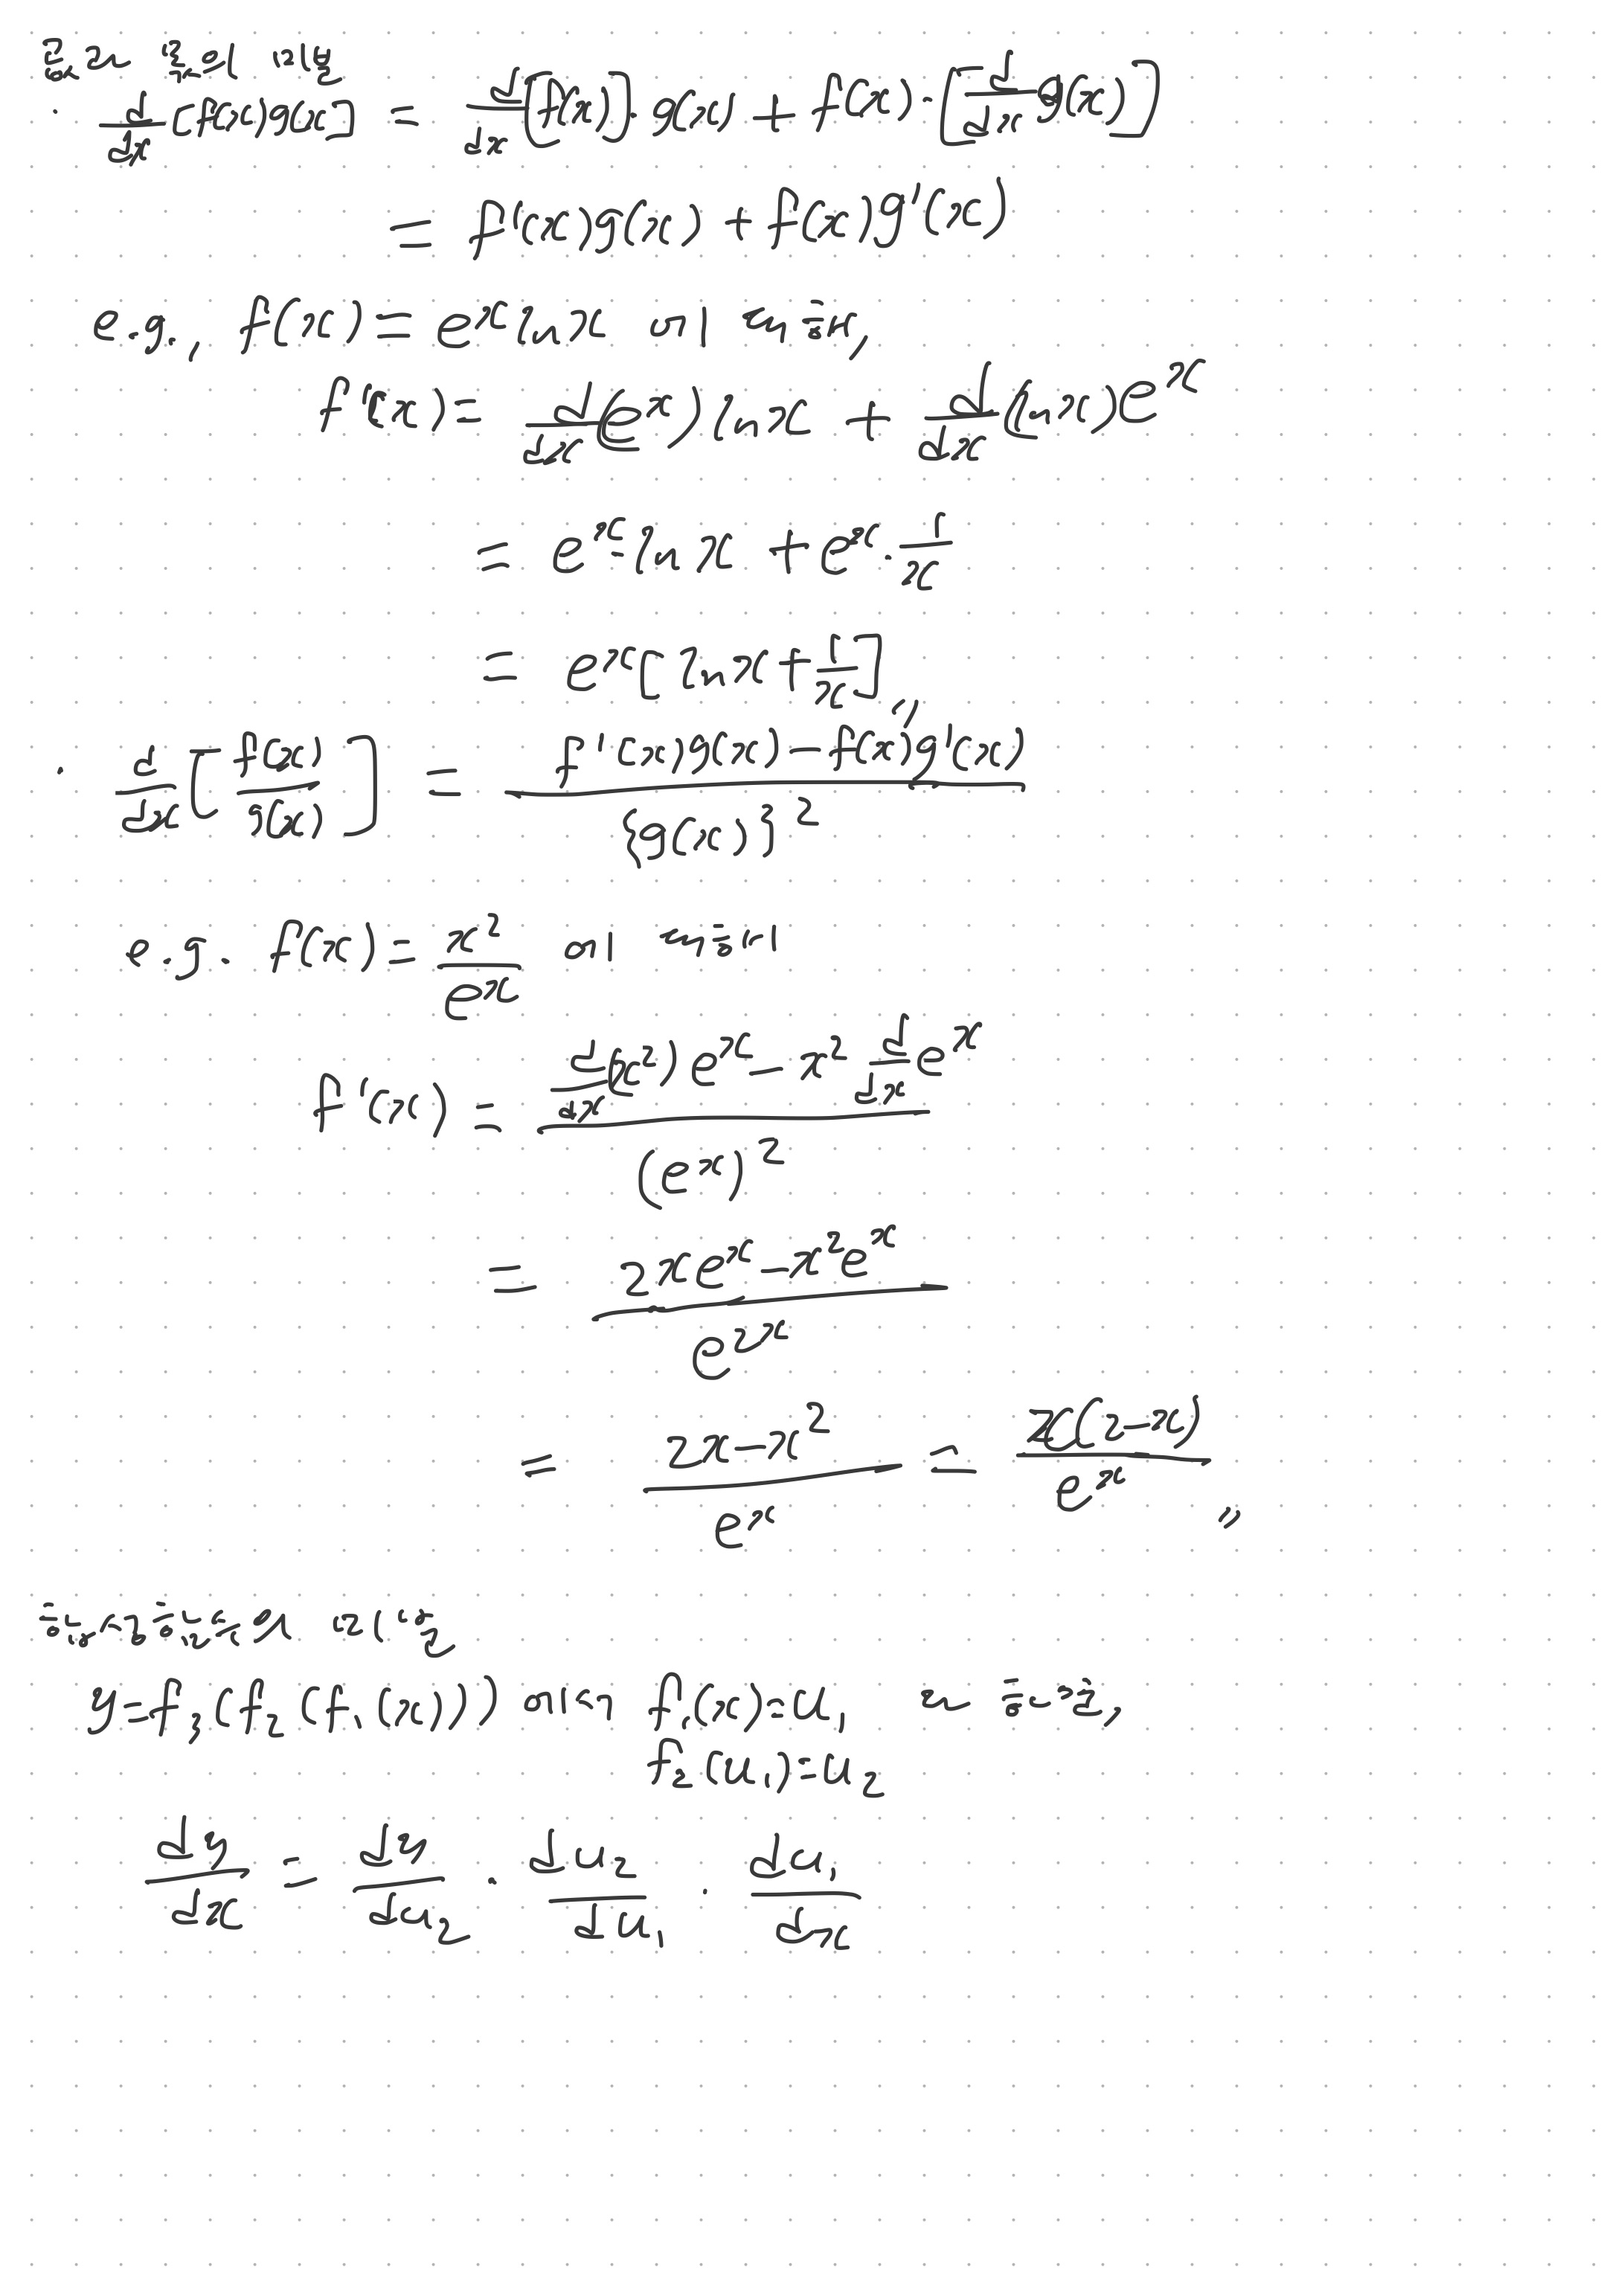 곱과 몫의 미분
· d/dx [f(x)g(x)] = d/dx [f(x)]· g(x) + f(x)·[d/dx g(x)]
= f'(x)g(x) + f(x)g'(x)
e.g., f(x) = e^x ln x
f'(x) = d/dx (e^x) ln x + d/dx (ln x) e^x
= e^x · ln x + e^x · 1/x
= e^x [ln x + 1/x] 〃
· d/dx [f(x)/g(x)] = (f'(x)g(x) − f(x)g'(x)) / {g(x)}^2
e.g. f(x) = x^2/e^x
f'(x) = (d/dx (x^2) e^x − x^2 d/dx e^x) / (e^x)^2
= (2xe^x − x^2e^x) / e^(2x)
= (2x − x^2)/e^x = x(2−x)/e^x 〃
y = f₃(f₂(f₁(x))) 에서 f₁(x) = u₁
f₂(u₁) = u₂
dy/dx = dy/du₂ · du₂/du₁ · du₁/dx